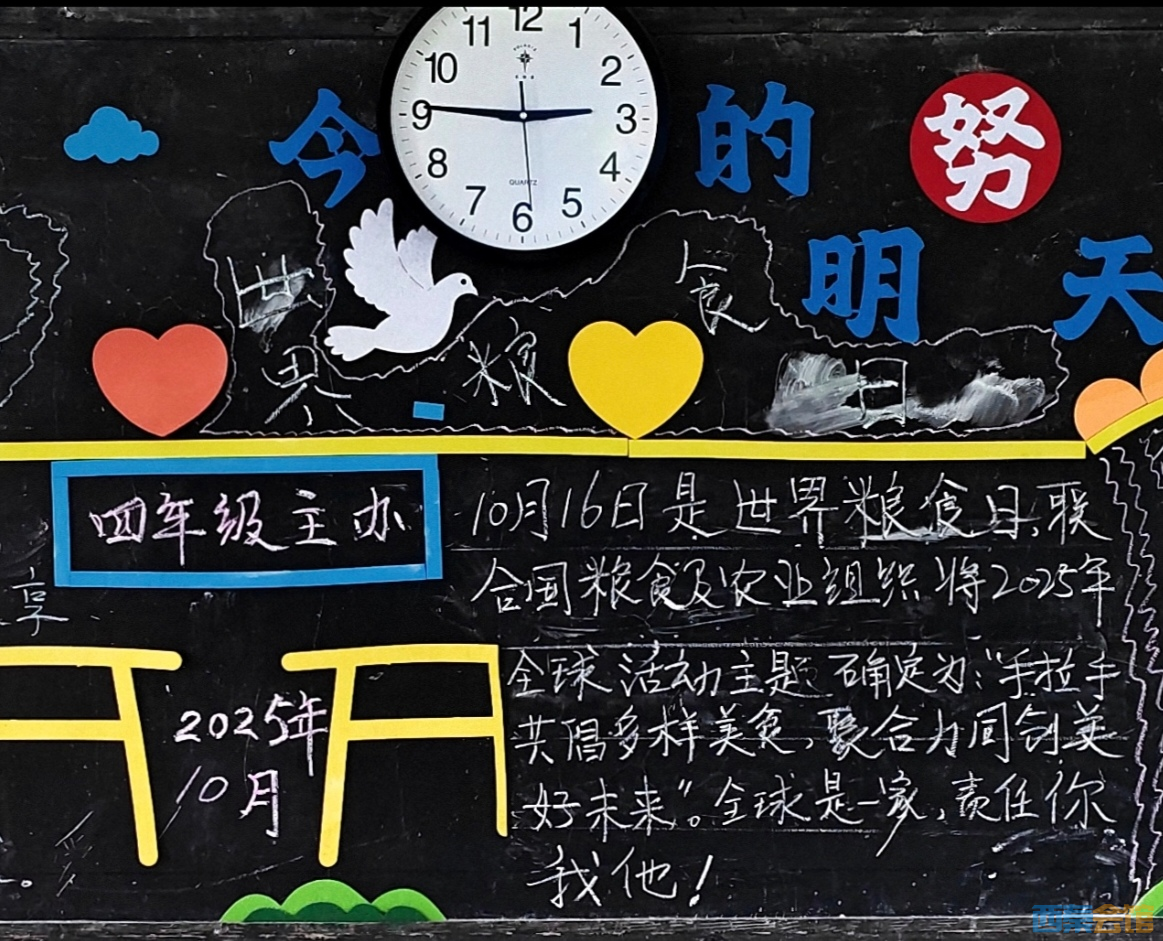 今 的 努
明 天
世界粮食日
四年级主办
享
2025年
10月
10月16日是世界粮食日,联
合国粮食及农业组织将2025年
全球活动主题确定为:“手拉手
共倡多样美食,聚合力同创美
好未来”。全球是一家,责任你
我他!
12
1
2
3
4
5
6
7
8
9
10
11
QUARTZ
西祠会馆